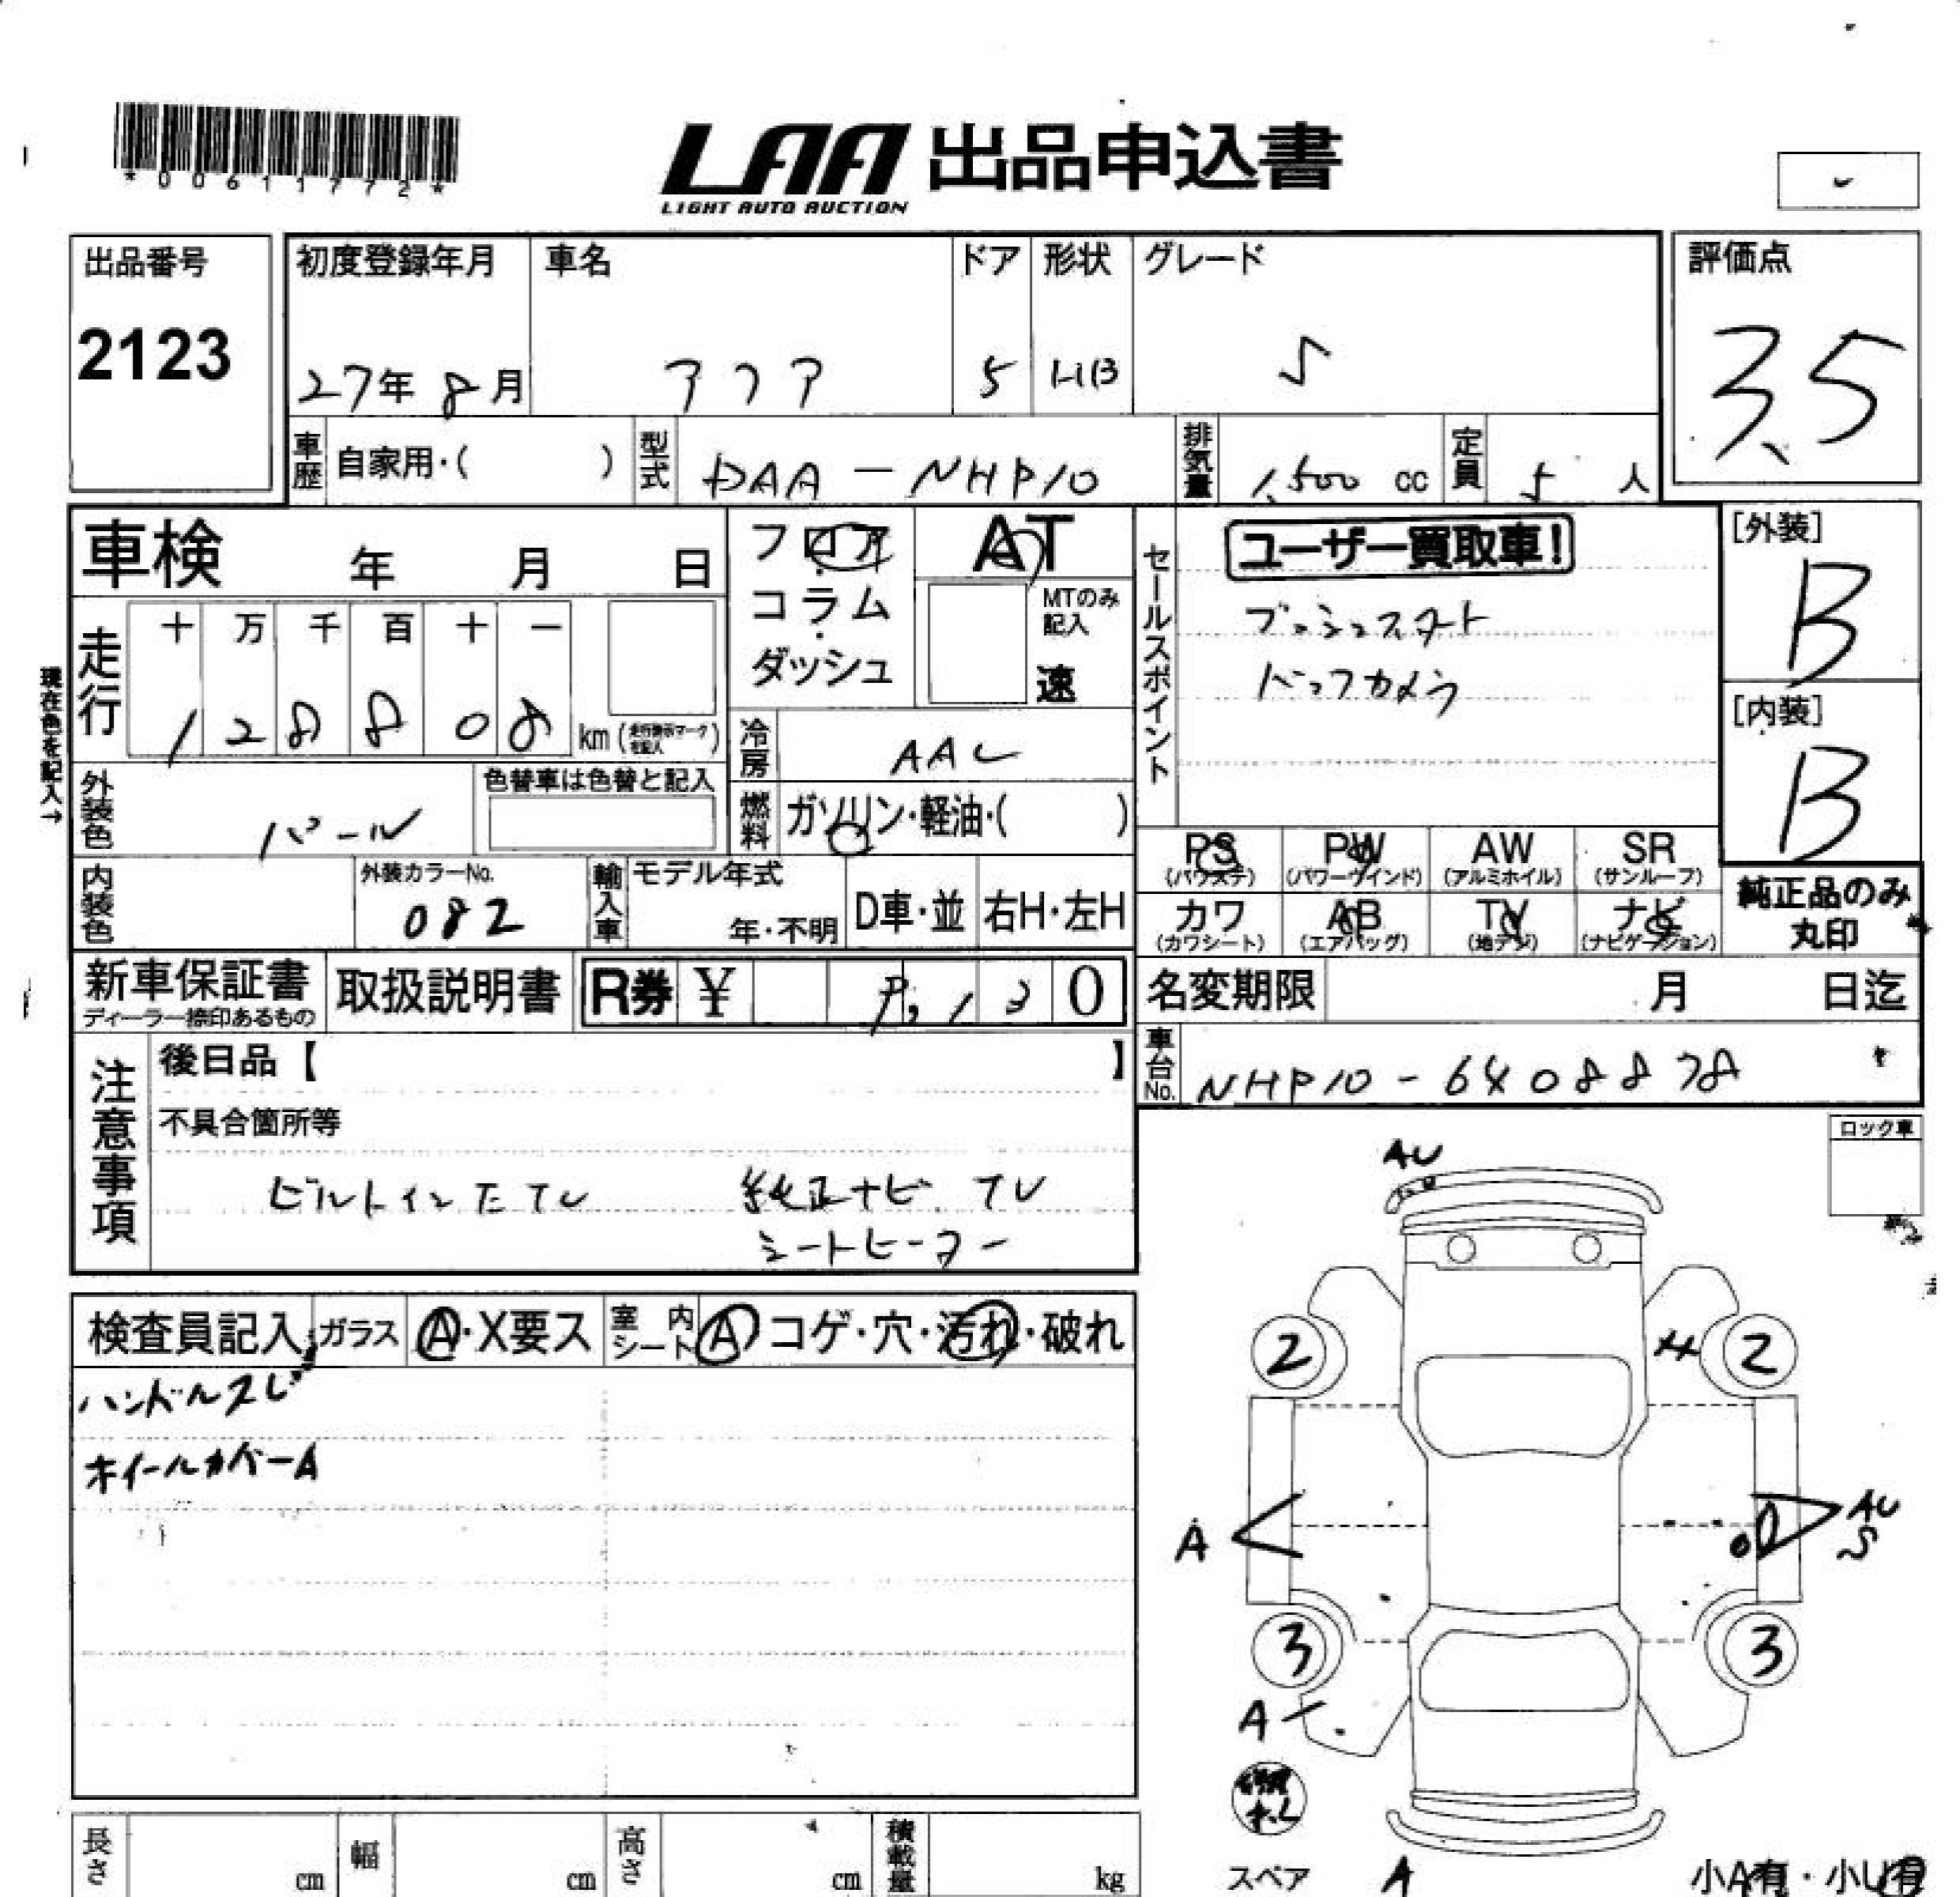 *00611772*
LAA 出品申込書
LIGHT AUTO AUCTION
出品番号
2123
初度登録年月
27年 8月
車名
アクア
ドア
5
形状
HB
グレード
S
評価点
3.5
車歴 自家用・( )
型式 DAA-NHP10
排気量 1,500 cc
定員 5 人
車検 年 月 日
フロア・コラム・ダッシュ
AT
MTのみ記入
速
走行
十 万 千 百 十 一
1 2 8 8 0 8 km (走行表示マークを記入)
現在色を記入→
冷房 AAC
外装色 パール
色替車は色替と記入
燃料 ガソリン・軽油・( )
内装色
外装カラーNo.
082
輸入車 モデル年式 年・不明 D車・並 右H・左H
セールスポイント
ユーザー買取車!
プッシュスタート
バックカメラ
[外装]
B
[内装]
B
PS (パワステ) PW (パワーウインド) AW (アルミホイル) SR (サンルーフ)
カワ (カワシート) AB (エアバッグ) TV (地デジ) ナビ (ナビゲーション)
純正品のみ丸印
新車保証書
ディーラー捺印あるもの
取扱説明書
R券 ¥ 9,130
名変期限 月 日迄
車台No. NHP10-6408878
注意事項
後日品【 】
不具合箇所等
ビルトインETC 純正ナビ.TV
シートヒーター
ロック車
検査員記入 ガラス A・X要ス 室内シート A コゲ・穴・汚れ・破れ
ハンドルスレ
ホイールカバーA
AU
2 2
A
AU
S
3 3
A
スペア
A
小A有・小U有
長さ cm 幅 cm 高さ cm 積載量 kg